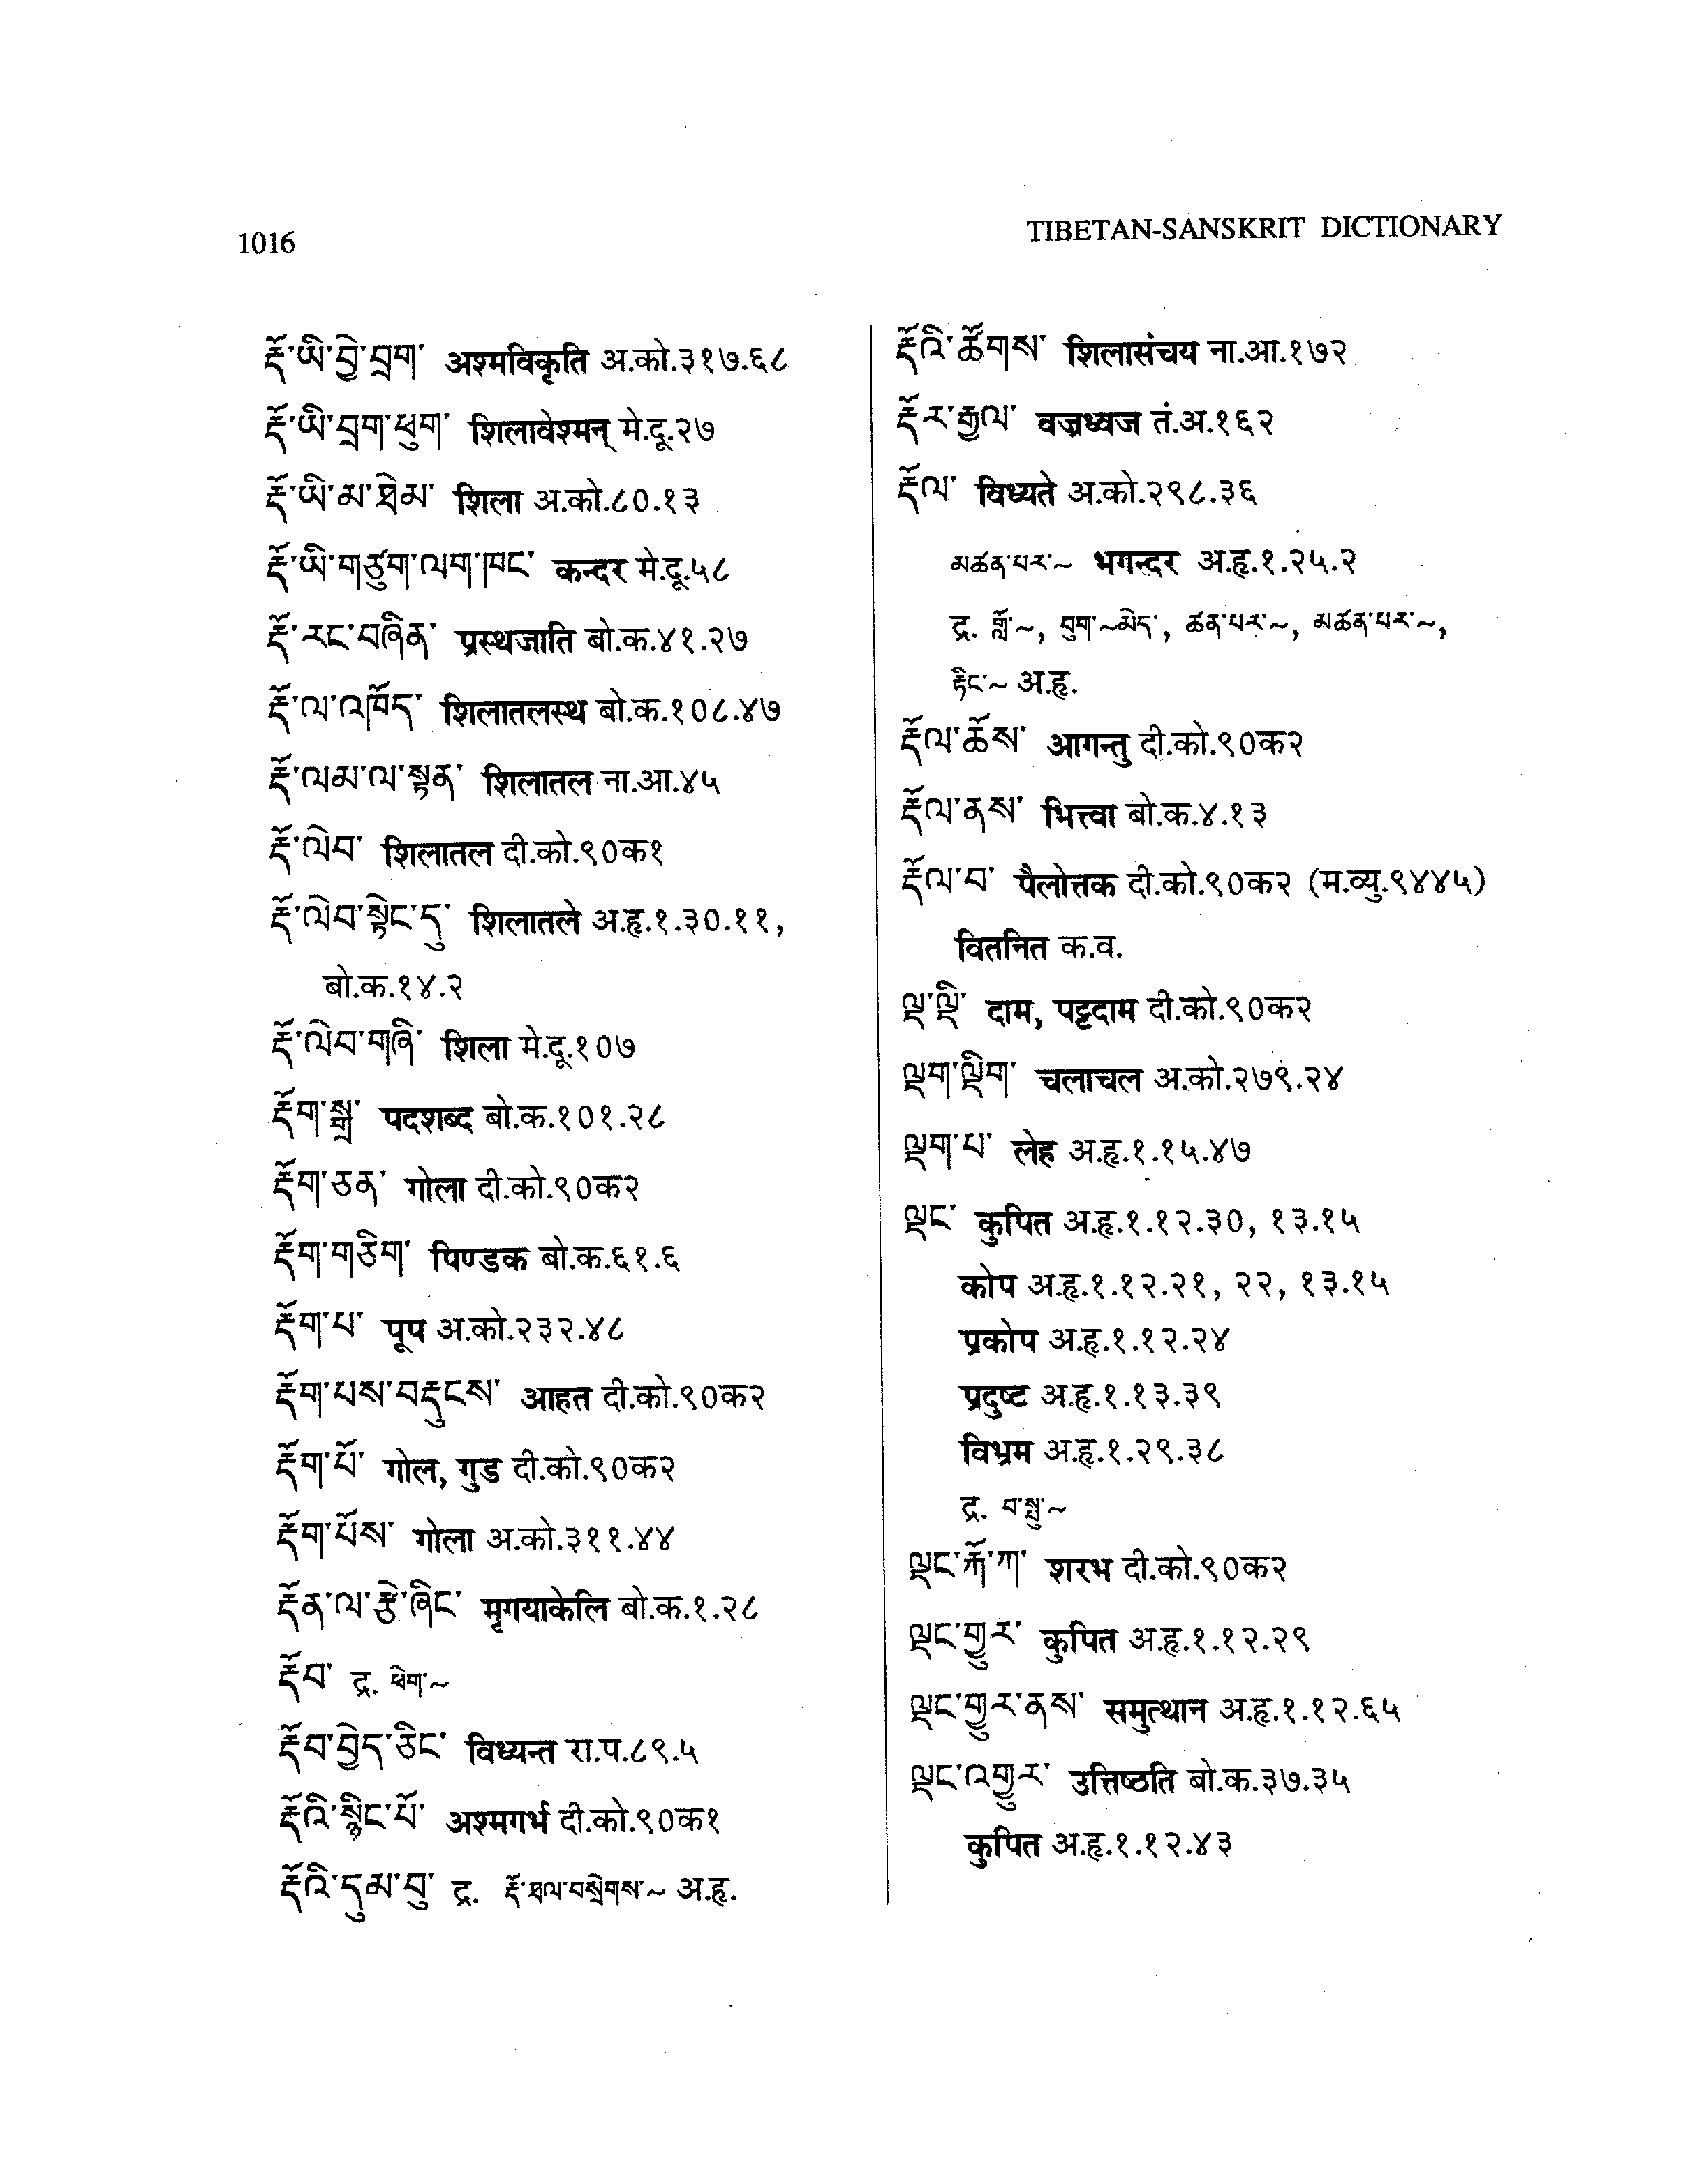 1016
TIBETAN-SANSKRIT DICTIONARY
རྡོ་ཡི་བྱེ་བྲག་ अश्मविकृति अ.को.३१७.६८
རྡོ་ཡི་བྲག་ཕུག་ शिलावेश्मन् मे.दू.२७
རྡོ་ཡི་མ་ཐེམ་ शिला अ.को.८०.१३
རྡོ་ཡི་གཙུག་ལག་ཁང་ कन्दर मे.दू.५८
རྡོ་རང་བཞིན་ प्रस्थजाति बो.क.४१.२७
རྡོ་ལ་འཁོད་ शिलातलस्थ बो.क.१०८.४७
རྡོ་ལམ་ལ་སྟན་ शिलातल ना.आ.४५
རྡོ་ལེབ་ शिलातल दी.को.९०क१
རྡོ་ལེབ་སྟེང་དུ་ शिलातले अ.हृ.१.३०.११,
बो.क.१४.२
རྡོ་ལེབ་གཞི་ शिला मे.दू.१०७
རྡོག་སྒྲ་ पदशब्द बो.क.१०१.२८
རྡོག་ཅན་ गोला दी.को.९०क२
རྡོག་གཅིག་ पिण्डक बो.क.६१.६
རྡོག་པ་ पूप अ.को.२३२.४८
རྡོག་པས་བརྡུངས་ आहत दी.को.९०क२
རྡོག་པོ་ गोल, गुड दी.को.९०क२
རྡོག་པོས་ गोला अ.को.३११.४४
རྡོན་ལ་རྩེ་ཞིང་ मृगयाकेलि बो.क.१.२८
རྡོབ་ द्र. ཕེག་~
རྡོབ་བྱེད་ཅིང་ विध्यन्त रा.प.८९.५
རྡོའི་སྙིང་པོ་ अश्मगर्भ दी.को.९०क१
རྡོའི་དུམ་བུ་ द्र. རྡོ་ཐལ་བསྲེགས་~ अ.हृ.
རྡོའི་ཚོགས་ शिलासंचय ना.आ.१७२
རྡོར་རྒྱལ་ वज्रध्वज तं.अ.१६२
རྡོལ་ विध्यते अ.को.२९८.३६
མཚན་པར་~ भगन्दर अ.हृ.१.२५.२
द्र. གློ་~, བུག་~མེད་, ཚན་པར་~, མཚན་པར་~,
རྟིང་~ अ.हृ.
རྡོལ་ཆོས་ आगन्तु दी.को.९०क२
རྡོལ་ནས་ भित्त्वा बो.क.४.१३
རྡོལ་བ་ पैलोत्तक दी.को.९०क२ (म.व्यु.९४४५)
वितनित क.व.
ལྡ་ལྡི་ दाम, पट्टदाम दी.को.९०क२
ལྡག་ལྡིག་ चलाचल अ.को.२७९.२४
ལྡག་པ་ लेह अ.हृ.१.१५.४७
ལྡང་ कुपित अ.हृ.१.१२.३०, १३.१५
कोप अ.हृ.१.१२.२१, २२, १३.१५
प्रकोप अ.हृ.१.१२.२४
प्रदुष्ट अ.हृ.१.१३.३९
विभ्रम अ.हृ.१.२९.३८
द्र. བ་སྤུ་~
ལྡང་རྐོ་ཀ་ शरभ दी.को.९०क२
ལྡང་གྱུར་ कुपित अ.हृ.१.१२.२९
ལྡང་གྱུར་ནས་ समुत्थान अ.हृ.१.१२.६५
ལྡང་འགྱུར་ उत्तिष्ठति बो.क.३७.३५
कुपित अ.हृ.१.१२.४३